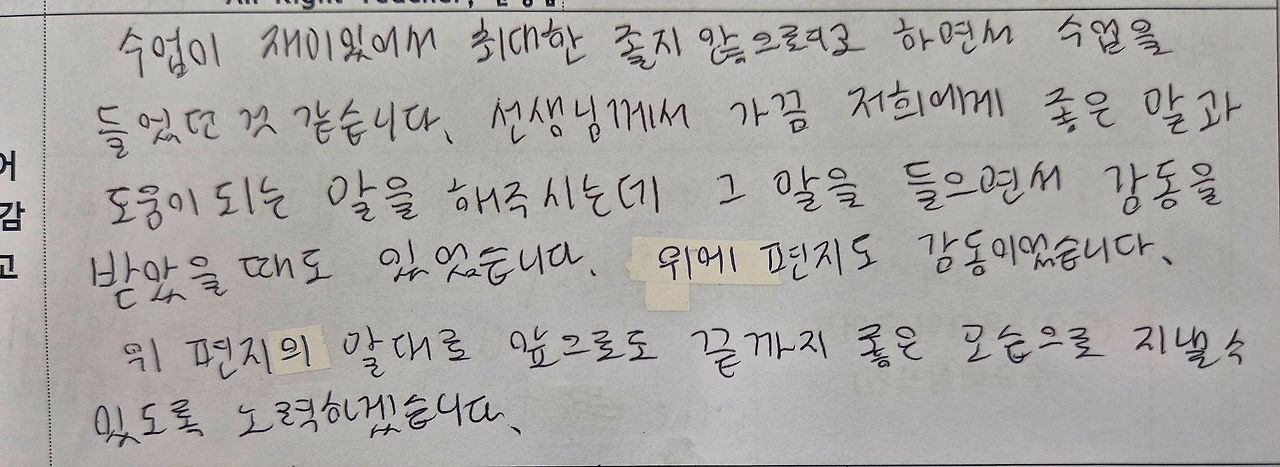 수업이 재미있어서 최대한 졸지 않으려고 하면서 수업을
들었던 것 같습니다. 선생님께서 가끔 저희에게 좋은 말과
도움이 되는 말을 해주시는데 그 말을 들으면서 감동을
받았을 때도 있었습니다. 위에 편지도 감동이었습니다.
위 편지의 말대로 앞으로도 끝까지 좋은 모습으로 지낼수
있도록 노력하겠습니다.
어
감
고